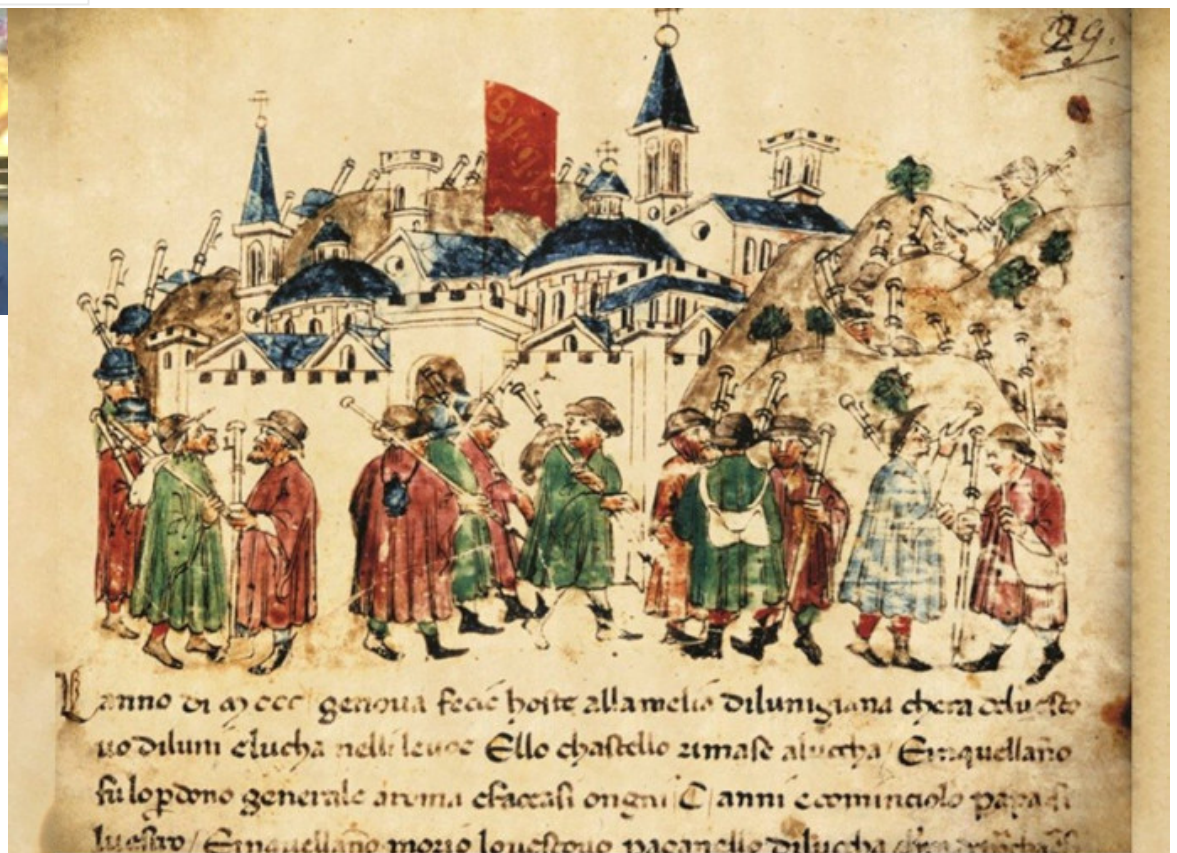 29.
Lanno di MCCC genova fecie hoste allamelia dilunigiana chera deluesco
uo diluni Elucha nelli leuoe Ello chastello rimase aluccha / Einquellano
fu lo pdono generale aroma efaccasi ongni C anni ecominciolo papa si
luestro / Einquellano morio louescouo paganello dilucha